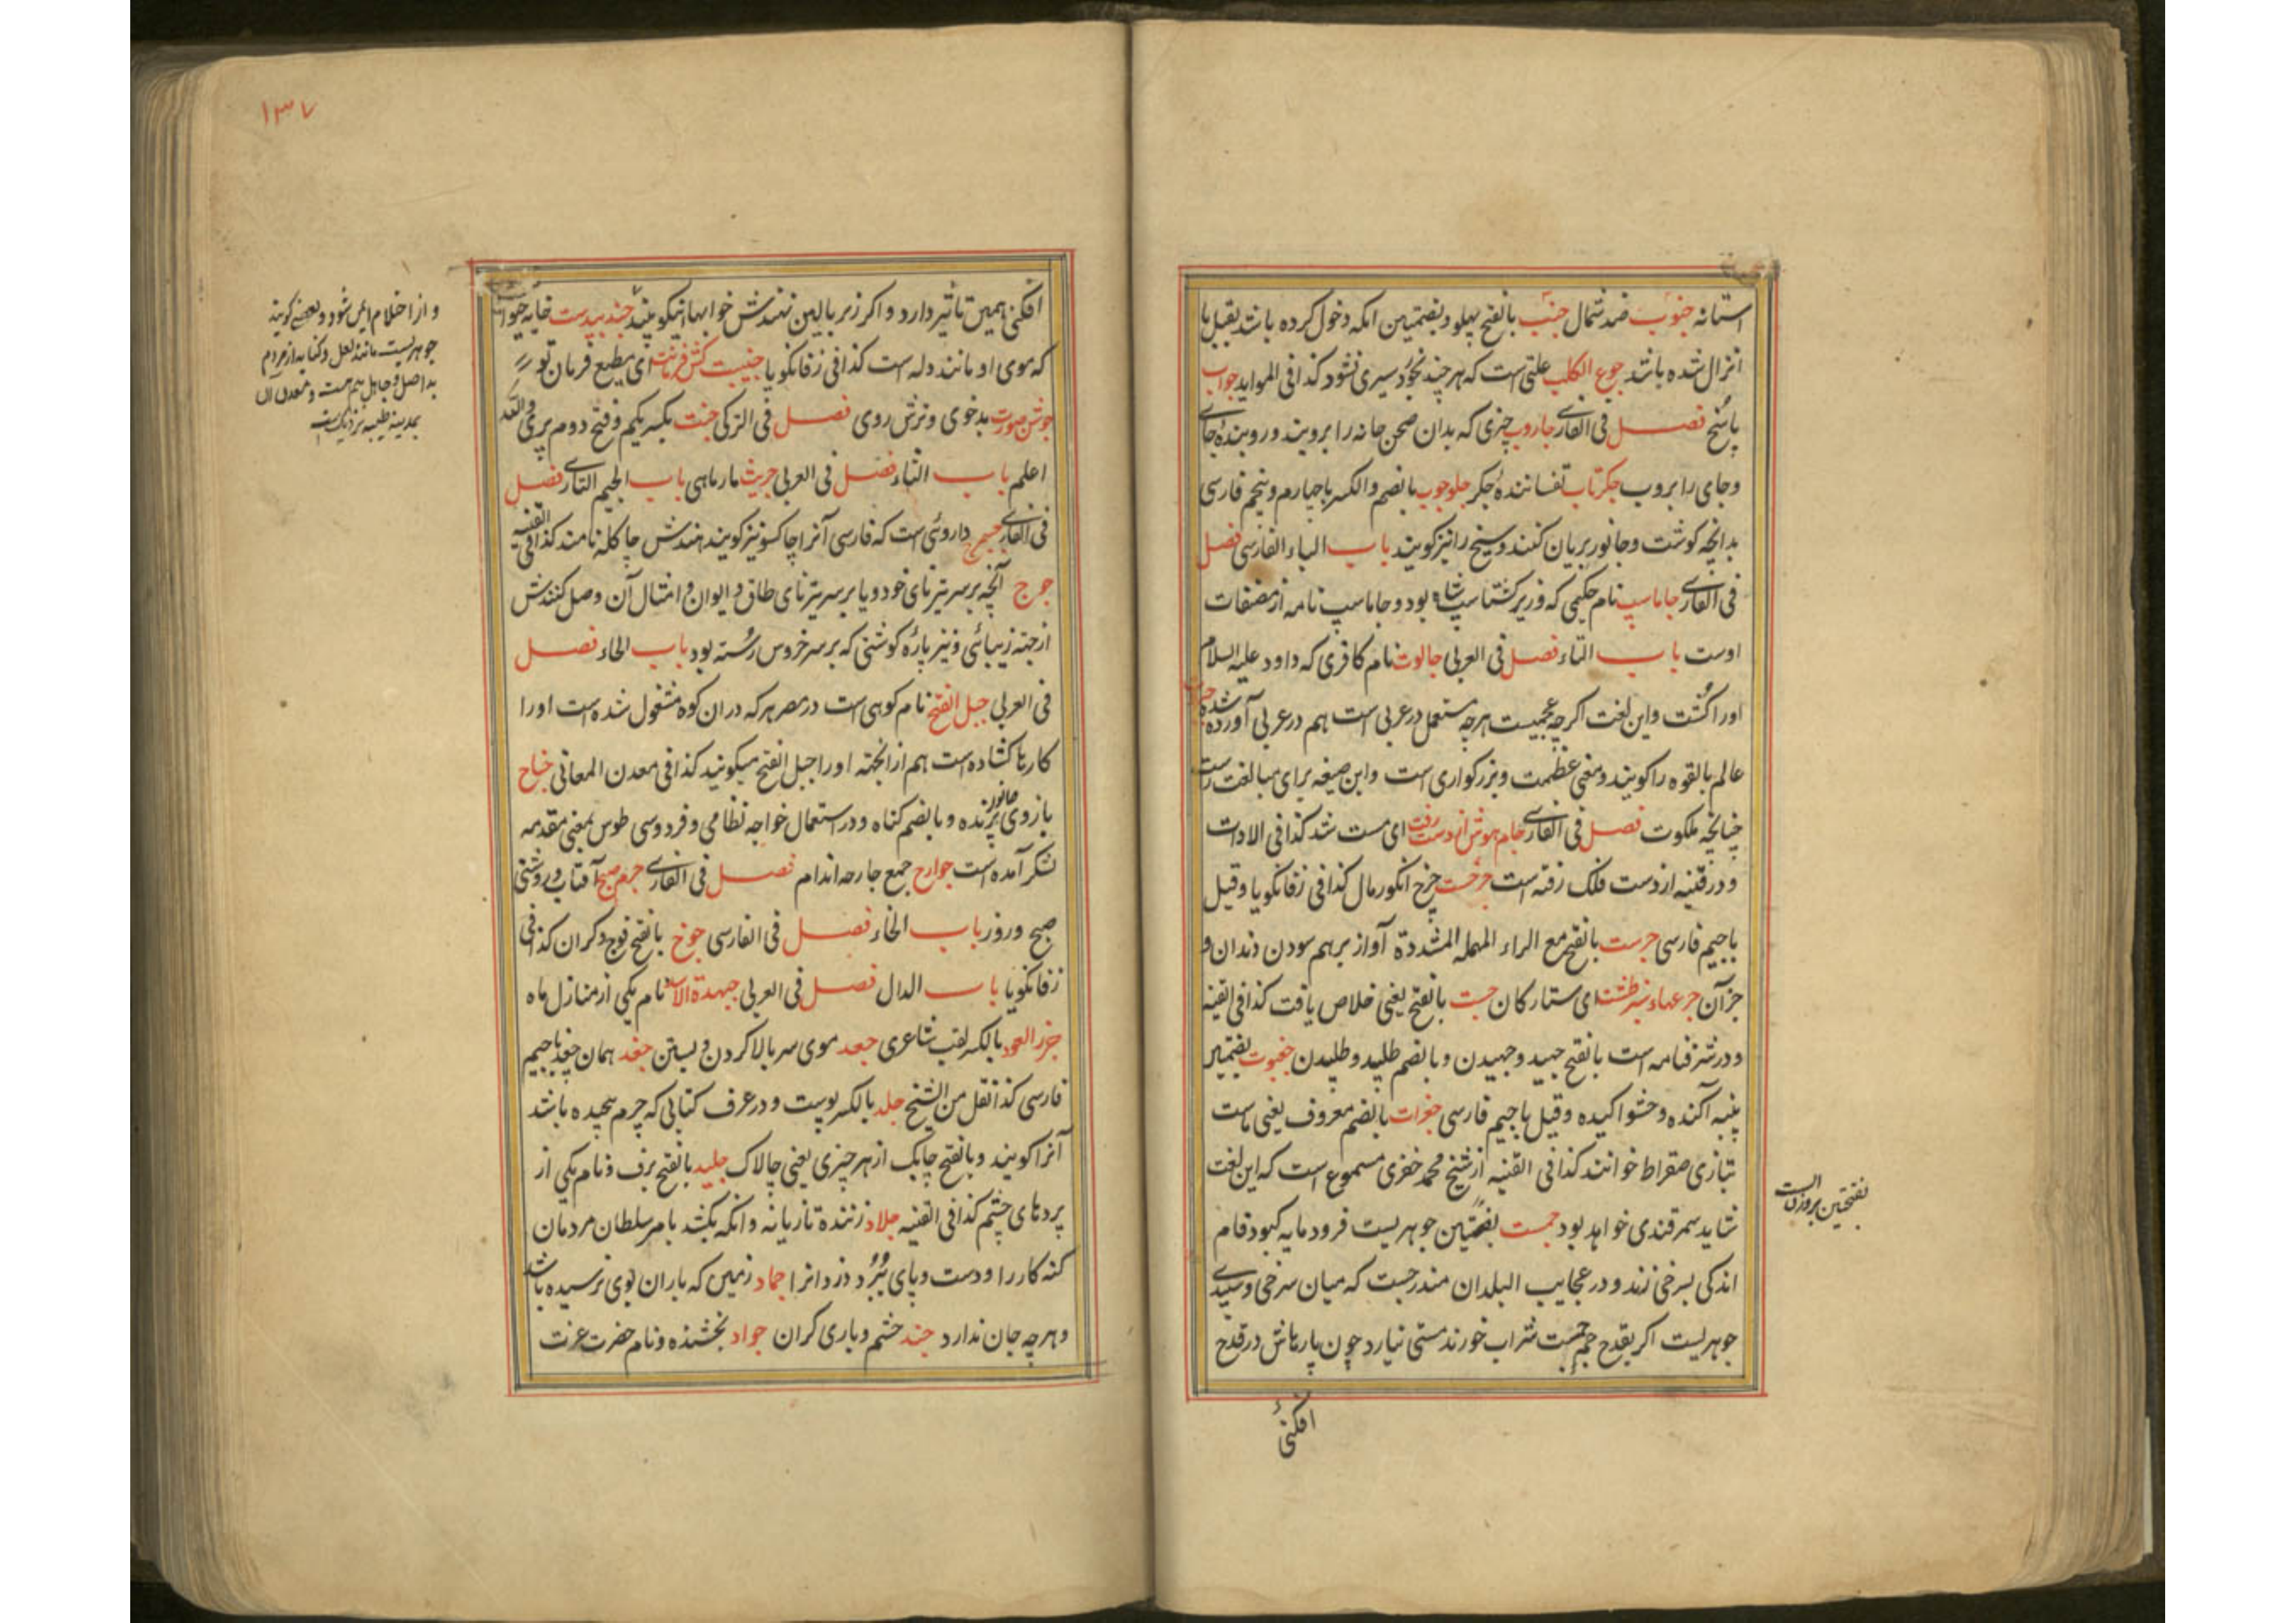 استانه جنوب ضد شمال جنب بالفتح پهلو و بضمتین انکه دخول کرده باشد بقبل یا
انزال شده باشد جوع الکلب علتی است که هر چند بخورد سیری نشود کذا فی المواید جواب
پاسخ فصل فی الفارسی جاروب چیزی که بدان صحن خانه را بروبند و روبندهٔ جای
و جای را بروب جکرتاب تفسانندهٔ جکر جلوجوب بالضم والکسر باچهارم و پنجم فارسی
بدانچه کوشت و جانور بریان کنند و سیخ را نیز کویند باب الباء الفارسی فصل
فی الفارسی جاماسپ نام حکیمی که وزیر کشتاسپ شاه بود و جاماسپ نامه از مصنفات
اوست باب التاء فصل فی العربی جالوت نام کافری که داود علیه السلام
اورا کشت و این لغت اکرچه عجمیست هرچه مستعمل در عربی است هم در عربی آورده شده
عالم بالقوه را کویند و معنی عظمت و بزرکواری است و این صیغه برای مبالغت راست
چنانچه ملکوت فصل فی الفارسی جام هوش از دست رفت ای مست شد کذا فی الادات
و در قنیه از دست فلک رفته است جرخست چرخ انکور مال کذا فی زفانکویا و قیل
باجیم فارسی جرست بالفتح مع الراء المهمله المشددة آواز برهم سودن دندان و
جز آن جرعهاء نه طشت ای ستارکان جست بالفتح یعنی خلاص یافت کذا فی القنیه
و در شرفنامه است بالفتح جهید و جهیدن و بالضم طلبید و طلبیدن جغبوت بضمتین
پنبه آکنده و حشو اکیده و قیل باجیم فارسی جغرات بالضم معروف یعنی ماست
بتازی صقراط خوانند کذا فی القنیه از شیخ محمد خضری مسموع است که این لغت
شاید سمرقندی خواهد بود جمست بفتحتین جوهریست فرومایه کبود فام
اندکی بسرخی زند و در عجایب البلدان مندرجست که میان سرخی و سپیدی
جوهریست اکر بقدح جمست شراب خورند مستی نیارد چون پارهاش در قدح
افکنی
بفتحتین بروزن الست
۱۳۷
افکنی همین تاثیر دارد و اکر زیر بالین نهندش خوابها نیکو بیند جندبیدست خایه حیوان
که موی او مانند دله است کذا فی زفانکویا جنیبت کش فرمانت ای مطیع فرمان تو
جوش صورت بدخوی و ترش روی فصل فی الترکی جنت بکسر یکم و فتح دوم پری والله
اعلم باب الثاء فصل فی العربی جریث مارماهی باب الجیم التازی فصل
فی الفارسی داروئی است که فارسی آنرا چاکسو نیز کویند هندش چاکله نامند کذا فی القنیه
جوج آنچه بر سر تیزنای خود و یا بر سر تیزنای طاق و ایوان و امثال آن وصل کنندش
از جهة زیبائی و نیز پارهٔ کوشتی که بر سر خروس رسته بود باب الحاء فصل
فی العربی جبل الفتح نام کوهی است در مصر هرکه دران کوه مشغول شده است اورا
کارها کشاده است هم از انجهته اورا جبل الفتح میکونید کذا فی معدن المعانی جناح
بازوی جانور پرنده و بالضم کناه و در استعمال خواجه نظامی و فردوسی طوس بمعنی مقدمه
لشکر آمده است جوارح جمع جارحه اندام فصل فی الفارسی جرم صبح آفتاب و روشنی
صبح و روز باب الخاء فصل فی الفارسی جوخ بالفتح فوج و کران کذا فی
زفانکویا باب الدال فصل فی العربی جبهة الاسد نام یکی از منازل ماه
جرر العود بالکسر لقب شاعری جعد موی سر بالا کردن و بستن جغد همان چغد باجیم
فارسی کذا نقل من الشیخ جلد بالکسر پوست و در عرف کتابی که چرم پیچیده باشد
آنرا کویند و بالفتح چابک از هر چیزی یعنی چالاک جلید بالفتح برف و نام یکی از
پردهای چشم کذا فی القنیه جلاد زننده تازیانه و انکه بکشد بامر سلطان مردمان
کنه کار را و دست و پای بُرد دزدانرا جماد زمین که باران بوی نرسیده باشد
و هرچه جان ندارد جند حشم و یاری کران جواد بخشنده و نام حضرت عزت
و از احلام ایمن شود و بعضی کویند
جوهریست مانند لعل و کنایه از مردم
بداصل و جاهل هم هست و معدن آن
بمدینه طیبه نزدیک است